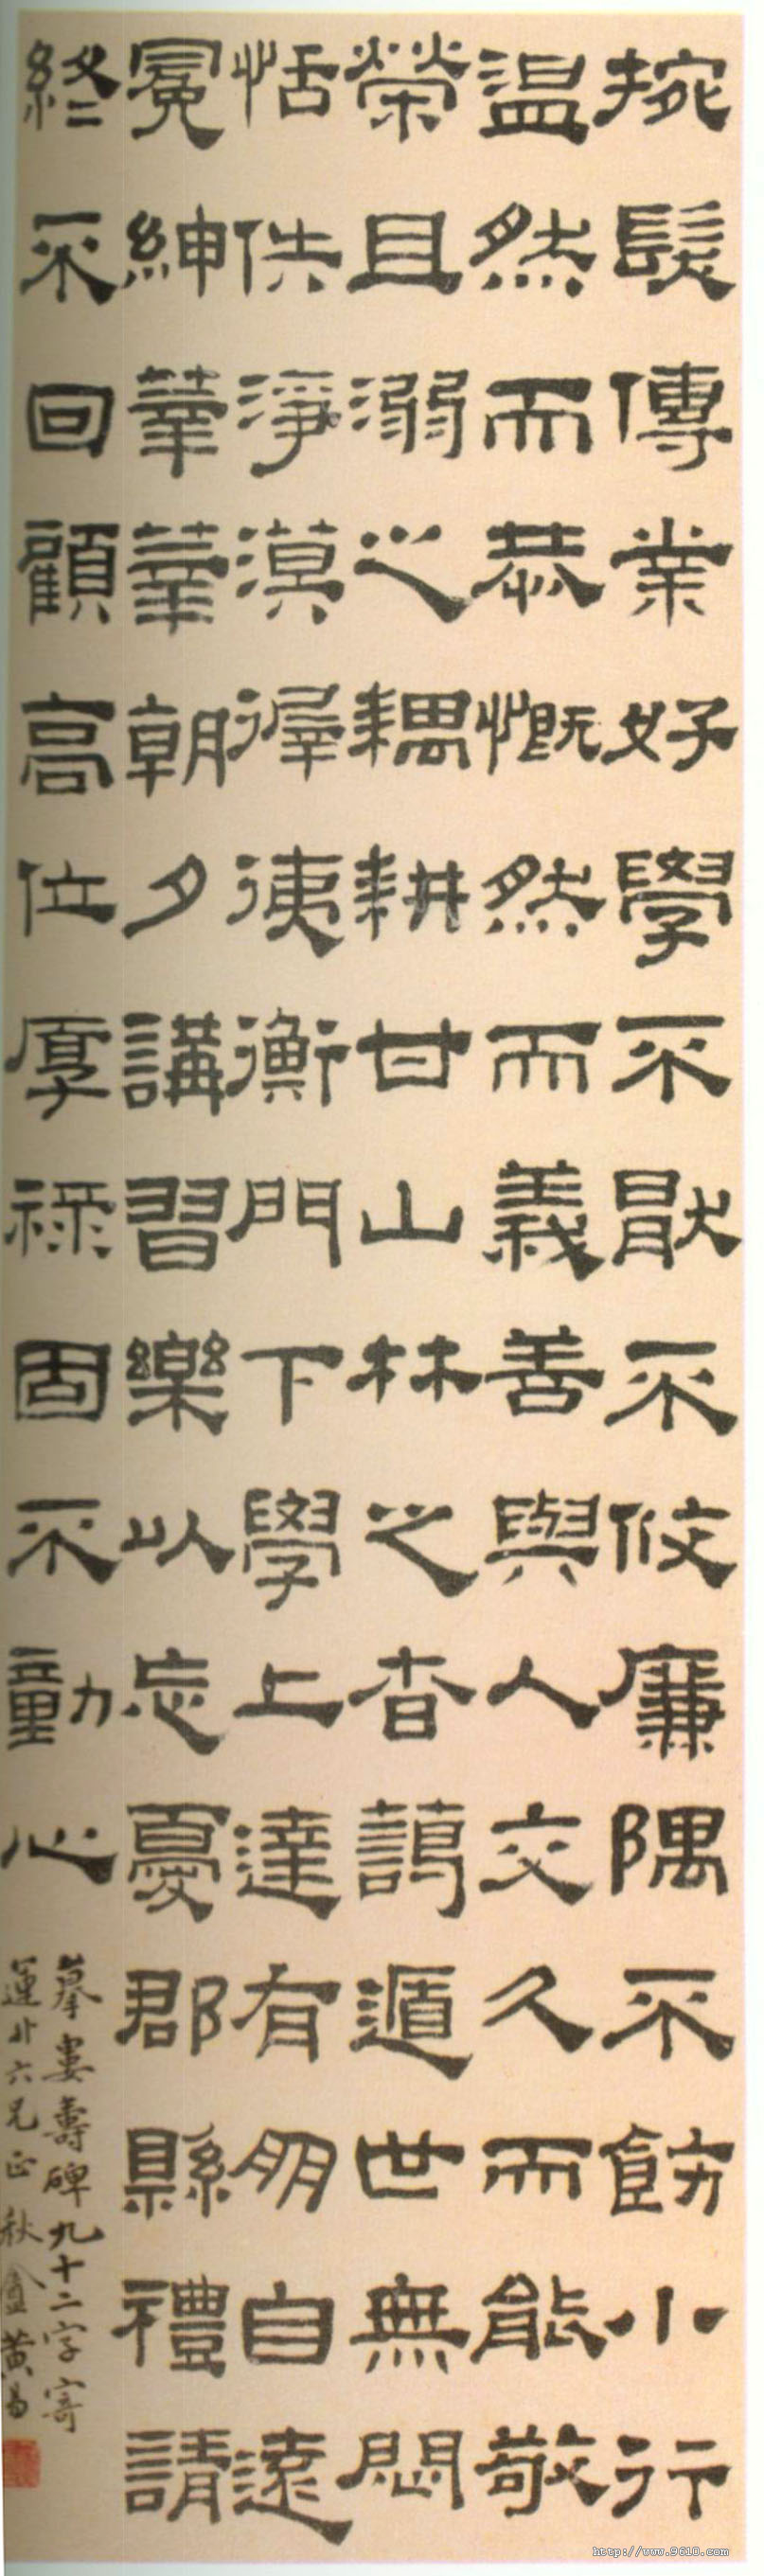 捥髮傳業好學不猒不攸廉隅不飭小行
温然而恭慨然而義善與人交久而能敬
榮且溺之耦耕甘山林之杳藹遁世無悶
恬佚淨漠徲徚衡門下學上達有朋自遠
冕紳莘莘朝夕講習樂以忘憂郡縣禮請
終不回顧高位厚祿固不動心
摹婁壽碑九十二字寄
蓮井六兄正 秋盦黃易
http://www.9610.com